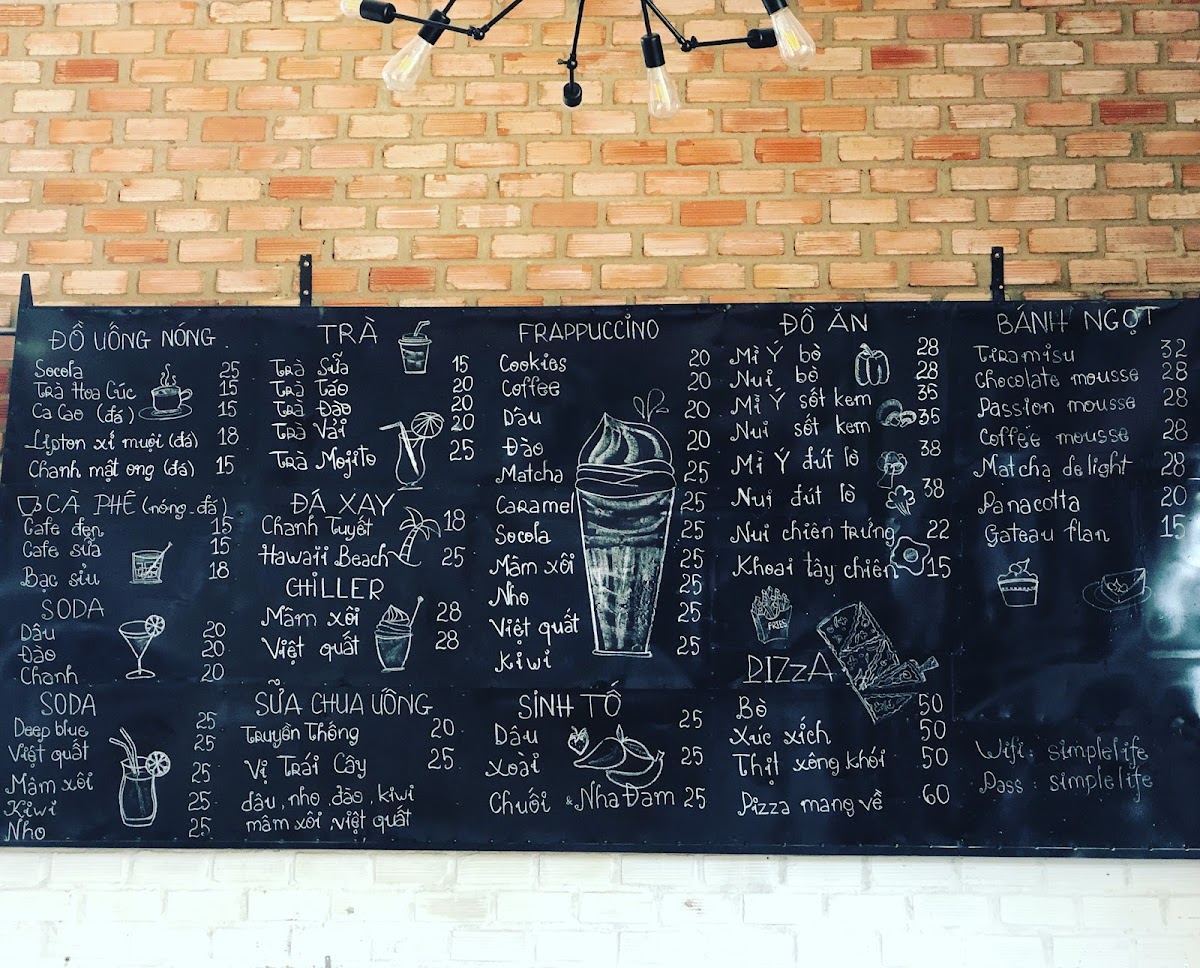 ĐỒ UỐNG NÓNG
Socola 25
Trà Hoa Cúc 15
Ca Cao (đá) 15
Lipton xí muội (đá) 18
Chanh mật ong (đá) 15
CÀ PHÊ (nóng - đá)
Cafe đen 15
Cafe sữa 15
Bạc sỉu 18
SODA
Dâu 20
Đào 20
Chanh 20
SODA
Deep blue 25
Việt quất 25
Mâm xôi 25
Kiwi 25
Nho 25
TRÀ
Trà Sữa 15
Trà Táo 20
Trà Đào 20
Trà Vải 20
Trà Mojito 25
ĐÁ XAY
Chanh Tuyết 18
Hawaii Beach 25
CHILLER
Mâm xôi 28
Việt quất 28
SỮA CHUA UỐNG
Truyền Thống 20
Vị Trái Cây 25
dâu, nho, đào, kiwi
mâm xôi, việt quất
FRAPPUCCINO
Cookies 20
Coffee 20
Dâu 20
Đào 20
Matcha 25
Caramel 25
Socola 25
Mâm xôi 25
Nho 25
Việt quất 25
Kiwi 25
SINH TỐ
Dâu 25
Xoài 25
Chuối & Nha Đam 25
ĐỒ ĂN
Mì Ý bò 28
Nui bò 28
Mì Ý sốt kem 35
Nui sốt kem 35
Mì Ý đút lò 38
Nui đút lò 38
Nui chiên trứng 22
Khoai tây chiên 15
FRIES
PIZZA
Bò 50
Xúc xích 50
Thịt xông khói 50
Pizza mang về 60
BÁNH NGỌT
Tiramisu 32
Chocolate mousse 28
Passion mousse 28
Coffee mousse 28
Matcha delight 28
Panacotta 20
Gateau flan 15
Wifi: simplelife
Pass: simplelife